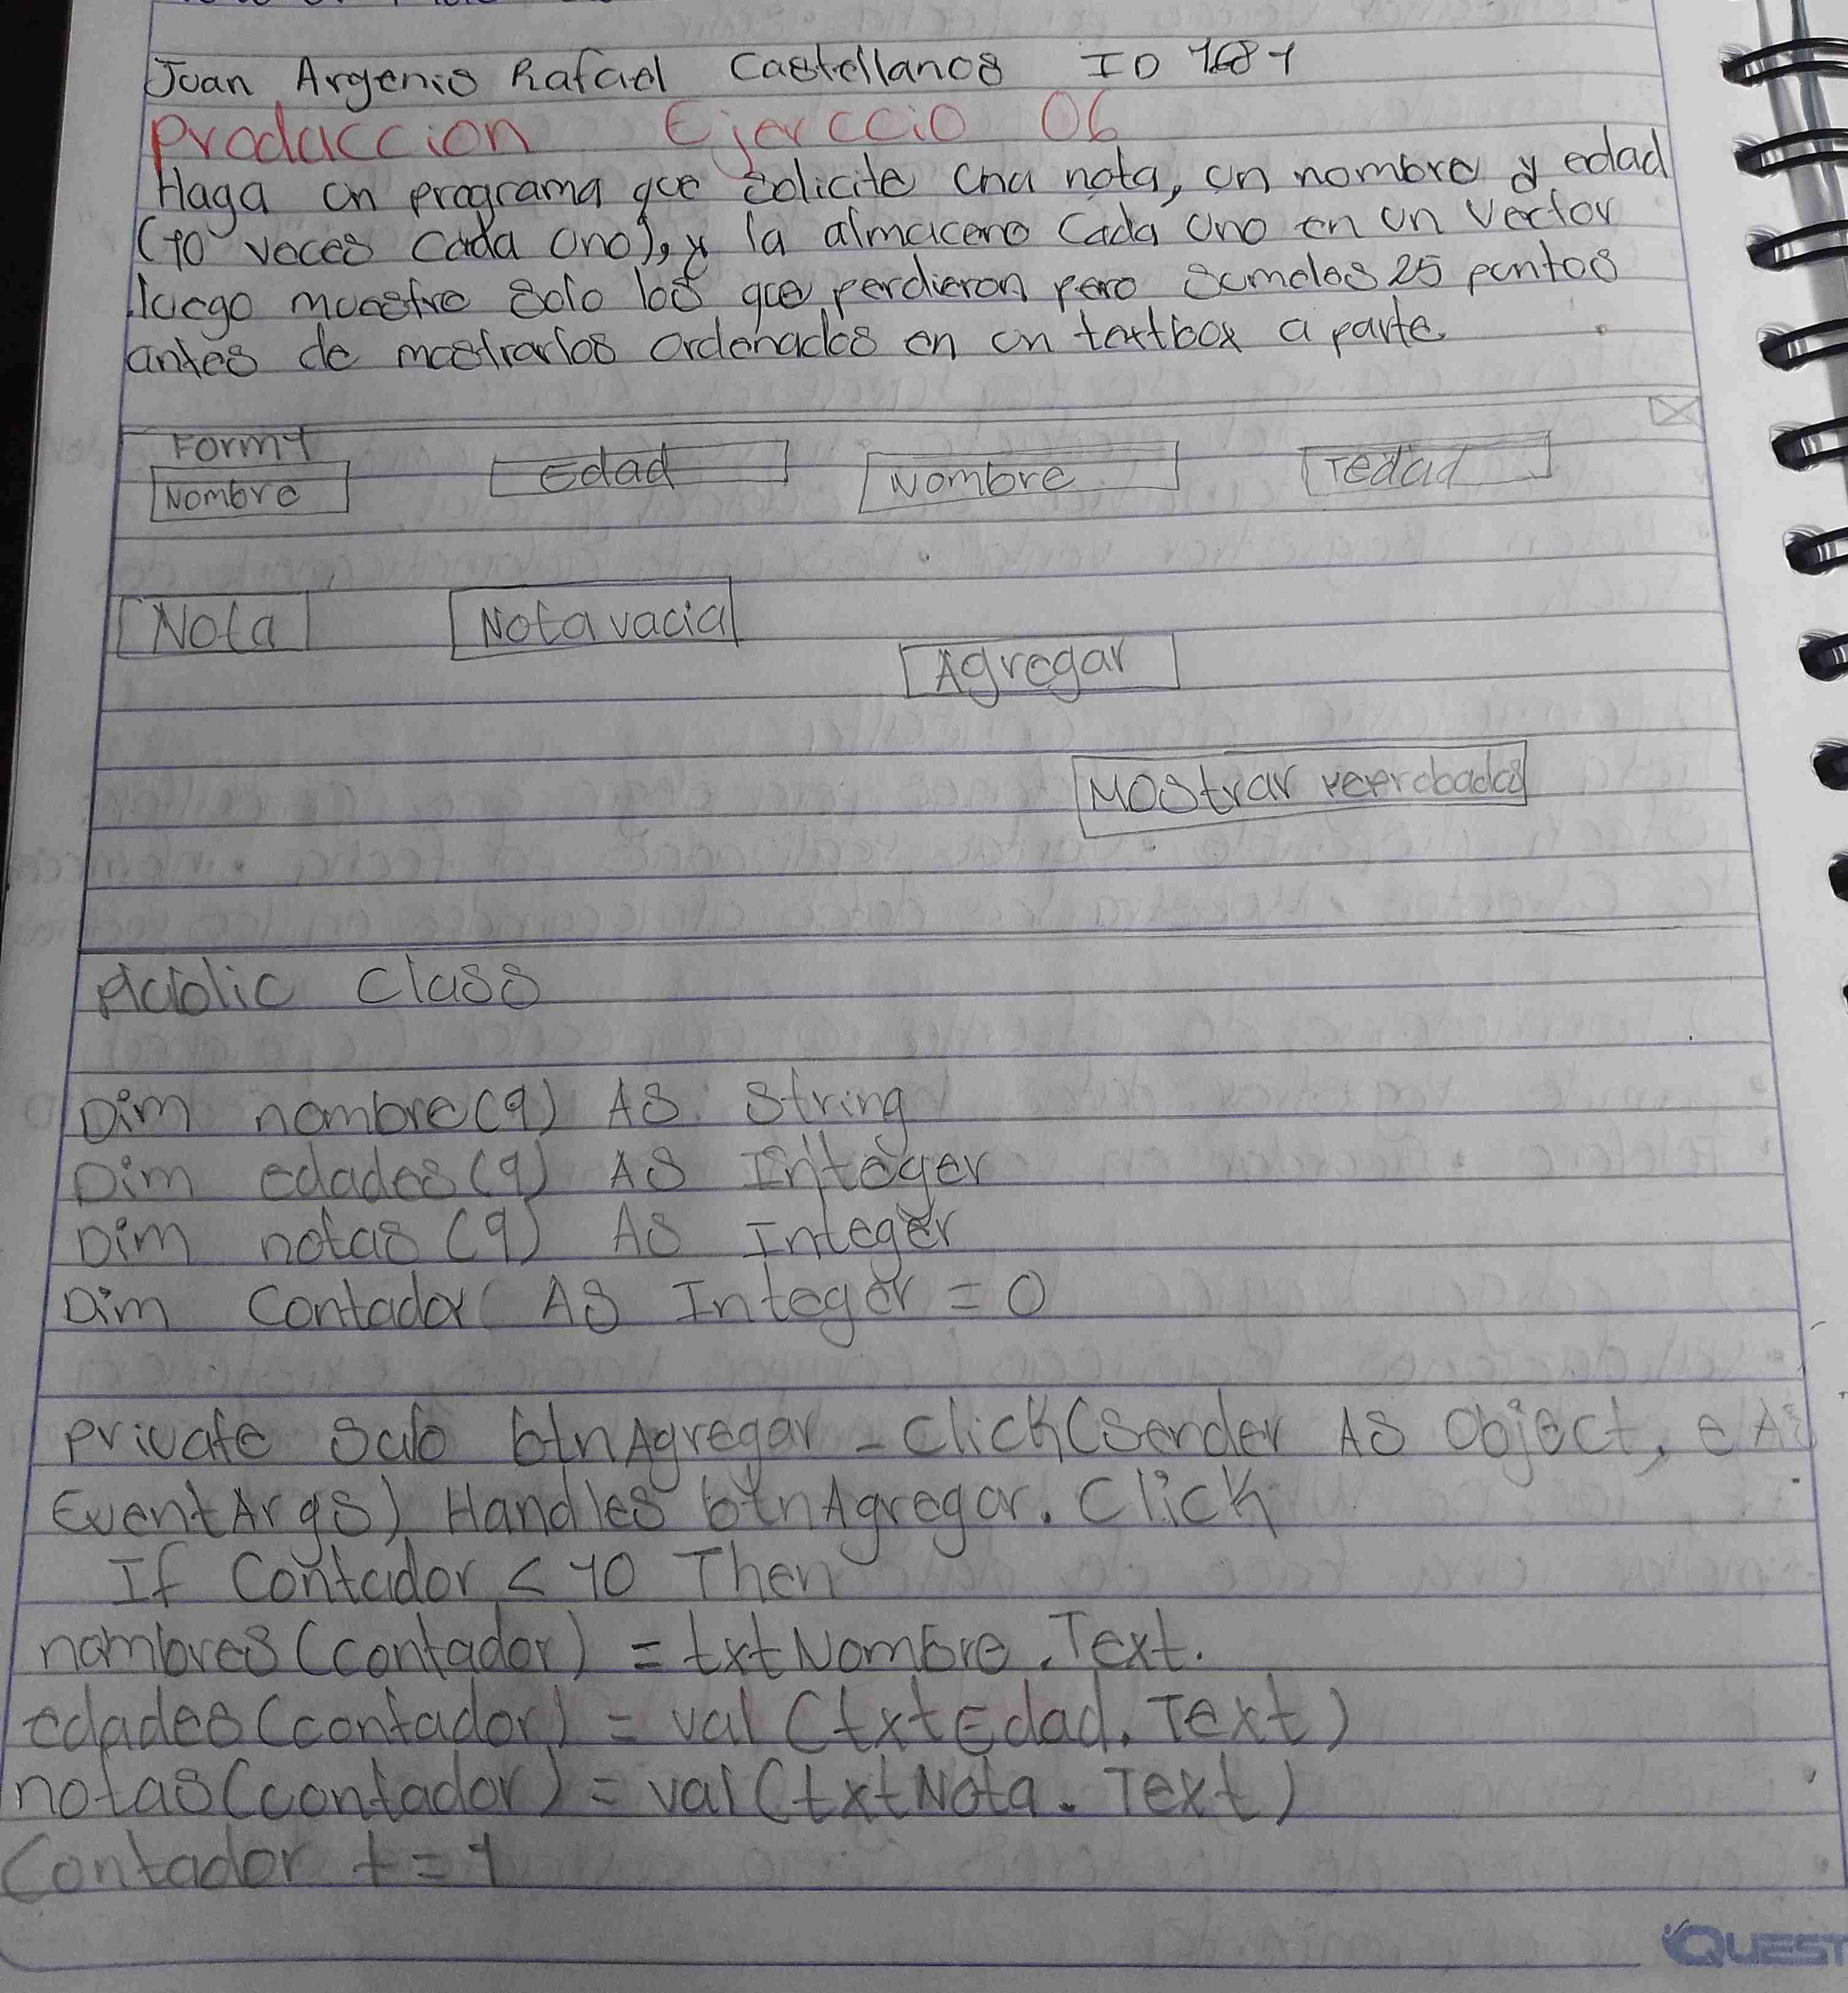 Juan Argenis Rafael Castellanos ID 1681
Producccion Ejerccio 06
Haga un programa que solicite una nota, un nombre y edad
(10 veces cada uno), y la almacene cada uno en un vector
luego muestre solo los que perdieron pero sumeles 25 puntos
antes de mostrarlos ordenados en un textbox a parte.
Form1
Nombre Edad Nombre Tedad
Nota Nota vacial
Agregar
Mostrar reprobados
Public Class
Dim nombre(9) As String
Dim edades(9) As Integer
Dim notas(9) As Integer
Dim Contador As Integer = 0
private Sub btnAgregar - Click(Sender As Object, e As
EventArgs) Handles btnAgregar. Click
If Contador < 10 Then
nombres(contador) = txtNombre. Text.
edades(contador) = val(txtEdad. Text)
notas(contador) = val(txtNota. Text)
Contador += 1
QUEST